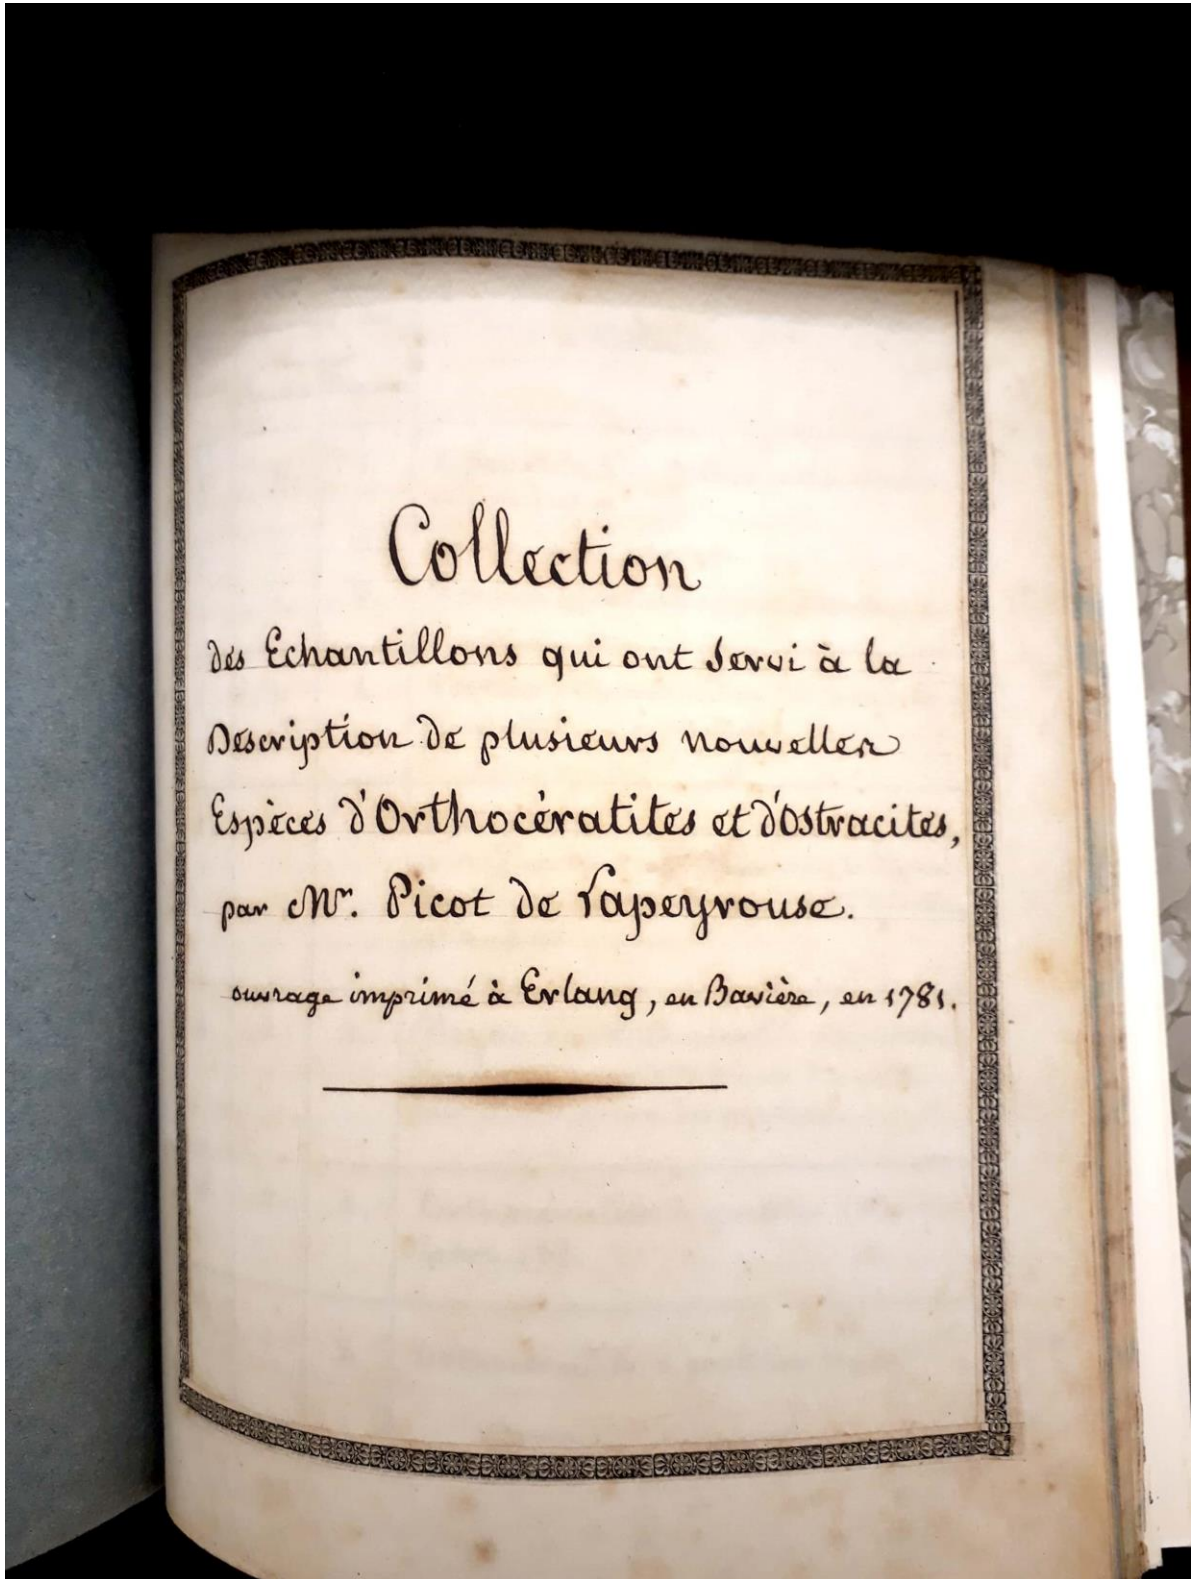 Collection
des Echantillons qui ont servi à la
Description de plusieurs nouvelles
Espèces d'Orthocératites et d'Ostracites,
par Mr. Picot de Lapeyrouse.
ouvrage imprimé à Erlang, en Bavière, en 1781.